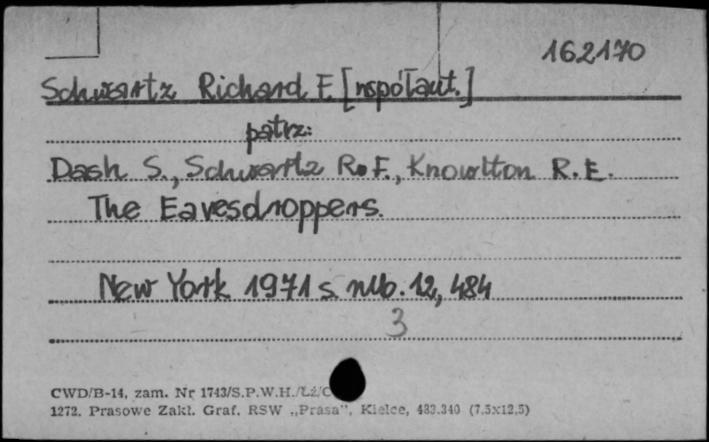 162170
Schwartz Richard F. [współaut.]
patrz:
Dash S., Schwartz R.F., Knowlton R.E.
The Eavesdroppers.
New York 1971 s nlb. 12, 484
3
CWD/B-14, zam. Nr 1743/S.P.W.H./Lż/
1272. Prasowe Zakł. Graf. RSW „Prasa”, Kielce, 483.340 (7,5x12,5)